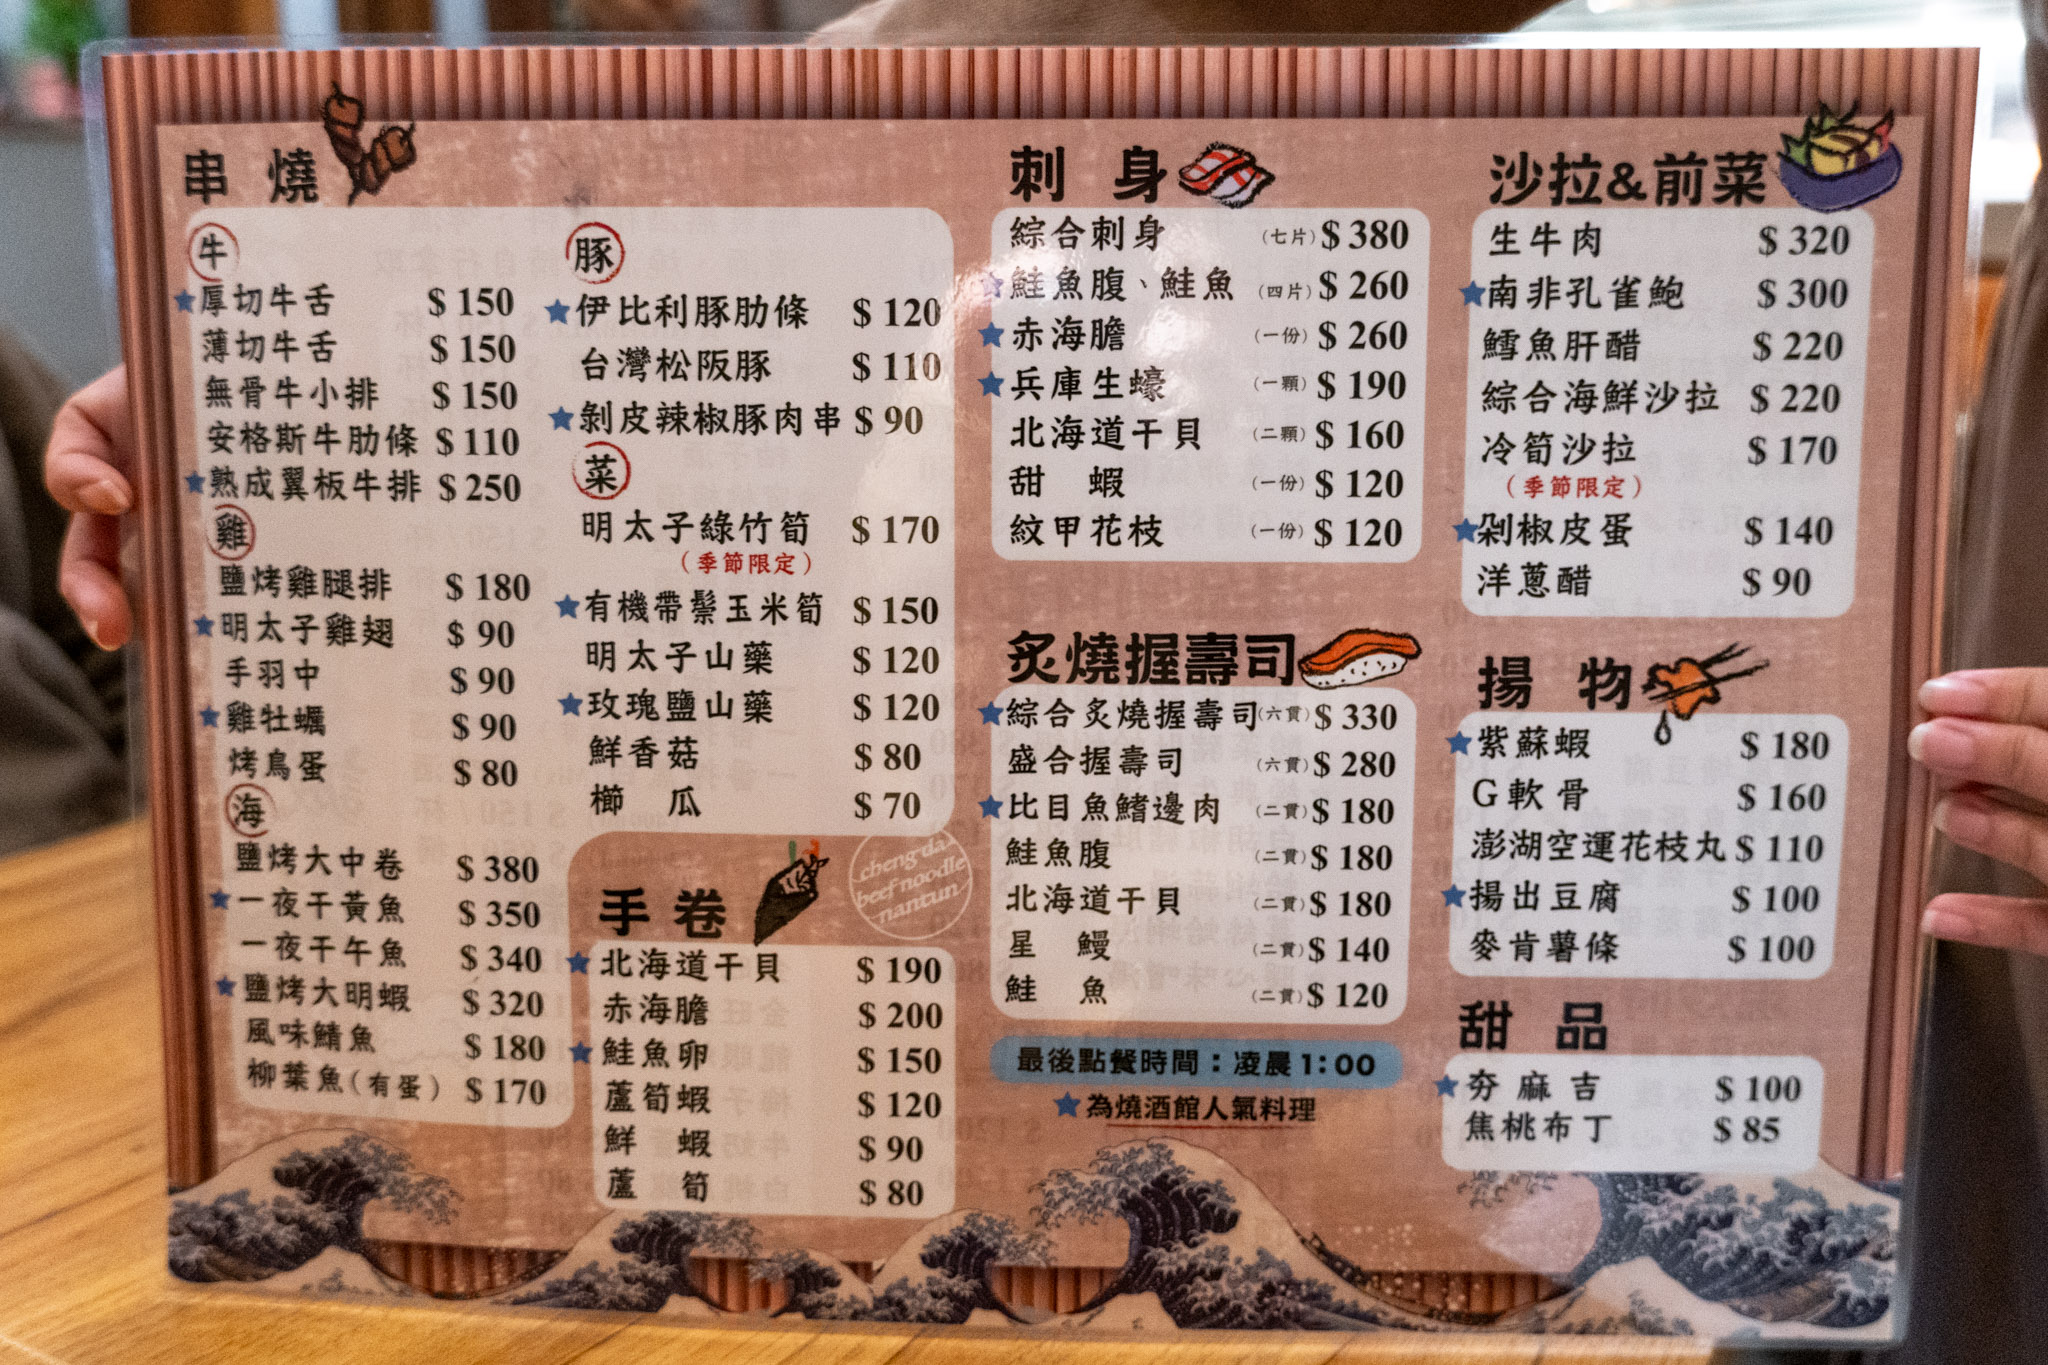 串燒
牛
★厚切牛舌 $150
薄切牛舌 $150
無骨牛小排 $150
安格斯牛肋條 $110
★熟成翼板牛排 $250
雞
鹽烤雞腿排 $180
★明太子雞翅 $90
手羽中 $90
★雞牡蠣 $90
烤鳥蛋 $80
海
鹽烤大中卷 $380
★一夜干黃魚 $350
一夜干午魚 $340
★鹽烤大明蝦 $320
風味鯖魚 $180
柳葉魚(有蛋) $170
豚
★伊比利豚肋條 $120
台灣松阪豚 $110
★剝皮辣椒豚肉串 $90
菜
明太子綠竹筍 $170
(季節限定)
★有機帶鬚玉米筍 $150
明太子山藥 $120
★玫瑰鹽山藥 $120
鮮香菇 $80
櫛瓜 $70
cheng dax
beef noodle
nantun
手卷
★北海道干貝 $190
赤海膽 $200
★鮭魚卵 $150
蘆筍蝦 $120
鮮蝦 $90
蘆筍 $80
刺身
綜合刺身 (七片) $380
★鮭魚腹、鮭魚 (四片) $260
★赤海膽 (一份) $260
★兵庫生蠔 (一顆) $190
北海道干貝 (二顆) $160
甜蝦 (一份) $120
紋甲花枝 (一份) $120
炙燒握壽司
★綜合炙燒握壽司(六貫) $330
盛合握壽司 (六貫) $280
★比目魚鰭邊肉 (二貫) $180
鮭魚腹 (二貫) $180
北海道干貝 (二貫) $180
星鰻 (二貫) $140
鮭魚 (二貫) $120
最後點餐時間：凌晨1:00
★為燒酒館人氣料理
沙拉&前菜
生牛肉 $320
★南非孔雀鮑 $300
鱈魚肝醋 $220
綜合海鮮沙拉 $220
冷筍沙拉 $170
(季節限定)
★剁椒皮蛋 $140
洋蔥醋 $90
揚物
★紫蘇蝦 $180
G軟骨 $160
澎湖空運花枝丸 $110
★揚出豆腐 $100
麥肯薯條 $100
甜品
★夯麻吉 $100
焦桃布丁 $85